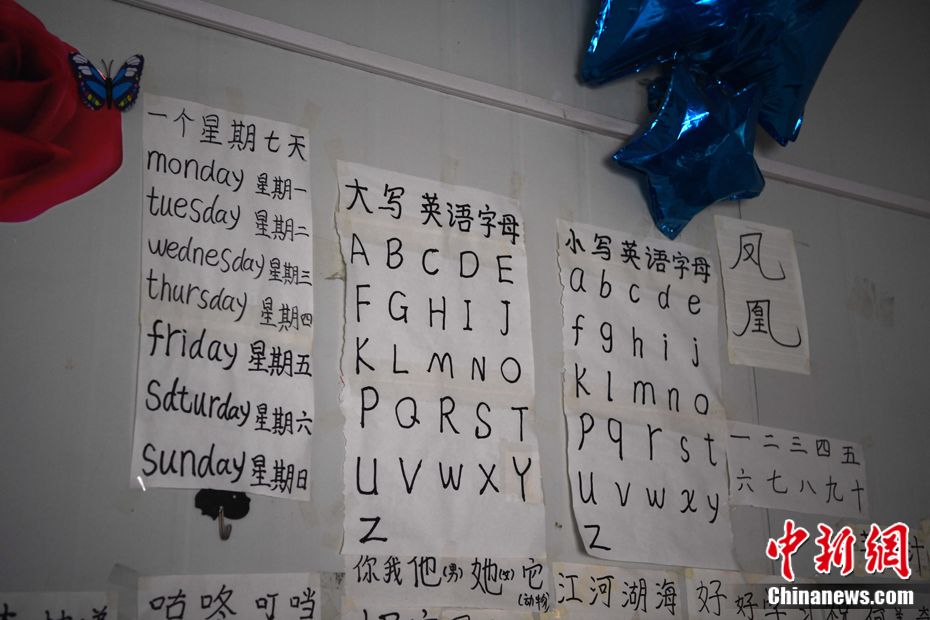 一个星期七天
monday 星期一
tuesday 星期二
wednesday 星期三
thursday 星期四
friday 星期五
sdturday 星期六
sunday 星期日
大写 英语字母
A B C D E
F G H I J
K L M N O
P Q R S T
U V W X Y
Z
小写 英语字母
a b c d e
f g h i j
k l m n o
p q r s t
u v w x y
z
凤
凰
一 二 三 四 五
六 七 八 九 十
你 我 他(男) 她(女) 它(动物)
江 河 湖 海
好
咕 咚 叮 当
中新网
Chinanews.com